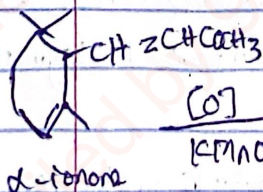 CH=CHCOCH3
[O]
KMnO
α-ionone